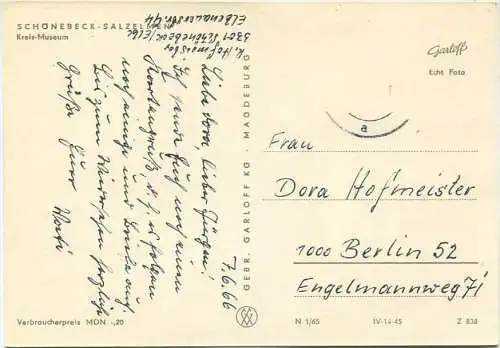 SCHÖNEBECK-SALZELMEN
Kreis-Museum
K. Hofmeister
3301 Schönebeck/Elbe
Elbenauerstr. 44
7.6.66
Liebe Dora, lieber Jürgen!
Ich sende Euch noch einen
Kartengruß d. h. es folgen
noch einige und Danke auch
Bis zum Wiedersehen herzliche
Grüße Euer
Verbraucherpreis MDN -,20
GEBR. GARLOFF KG · MAGDEBURG
Garloff
Echt Foto
a
Frau
Dora Hofmeister
1000 Berlin 52
Engelmannweg 71
N 1/65 IV-14-45 Z 838